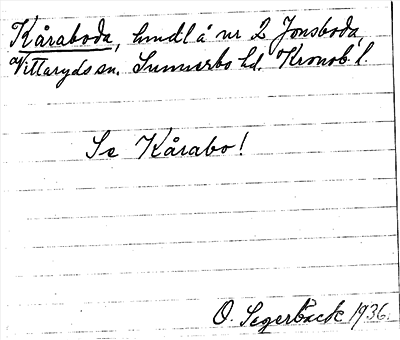 Kåraboda, hmdl å nr 2 Jonsboda,
av Vittaryds sn. Sunnerbo hd. Kronob. l.
Se Kårabo!
O. Segerbäck 1936.